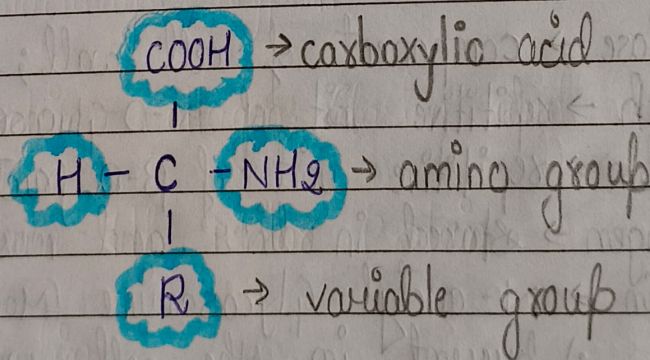 COOH → carboxylic acid
|
H - C - NH2 → amino group
|
R → variable group